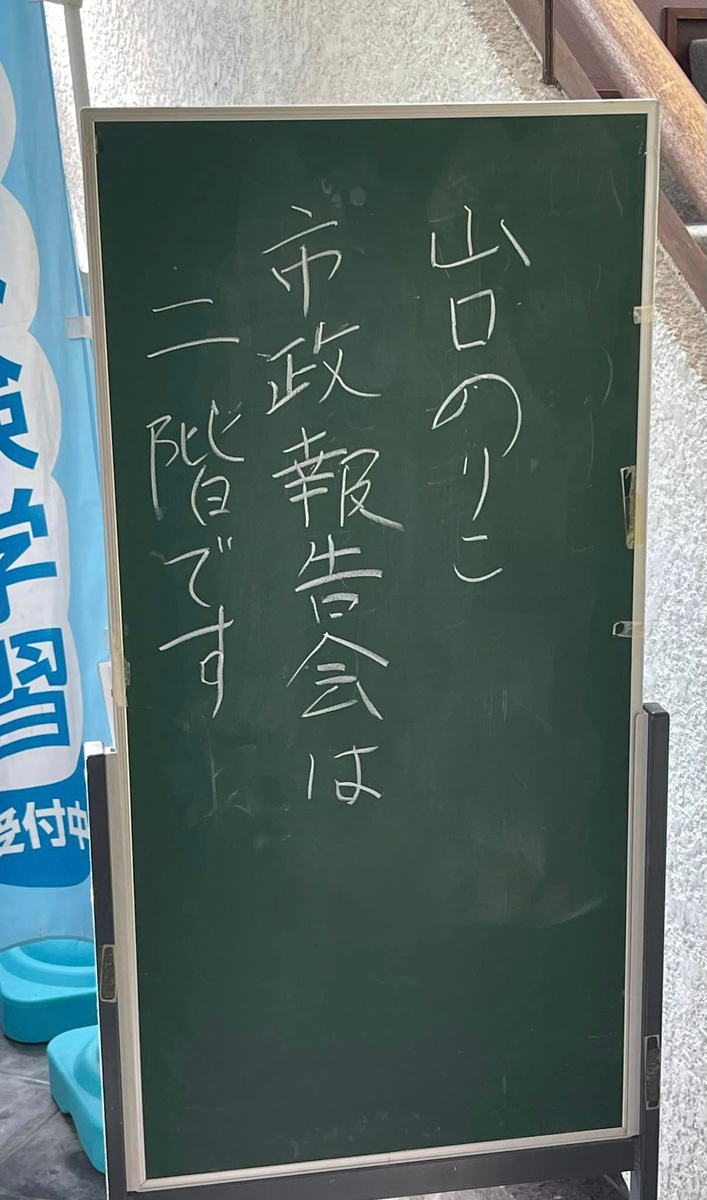 山口のりこ
市政報告会は
二階です
験学習
受付中